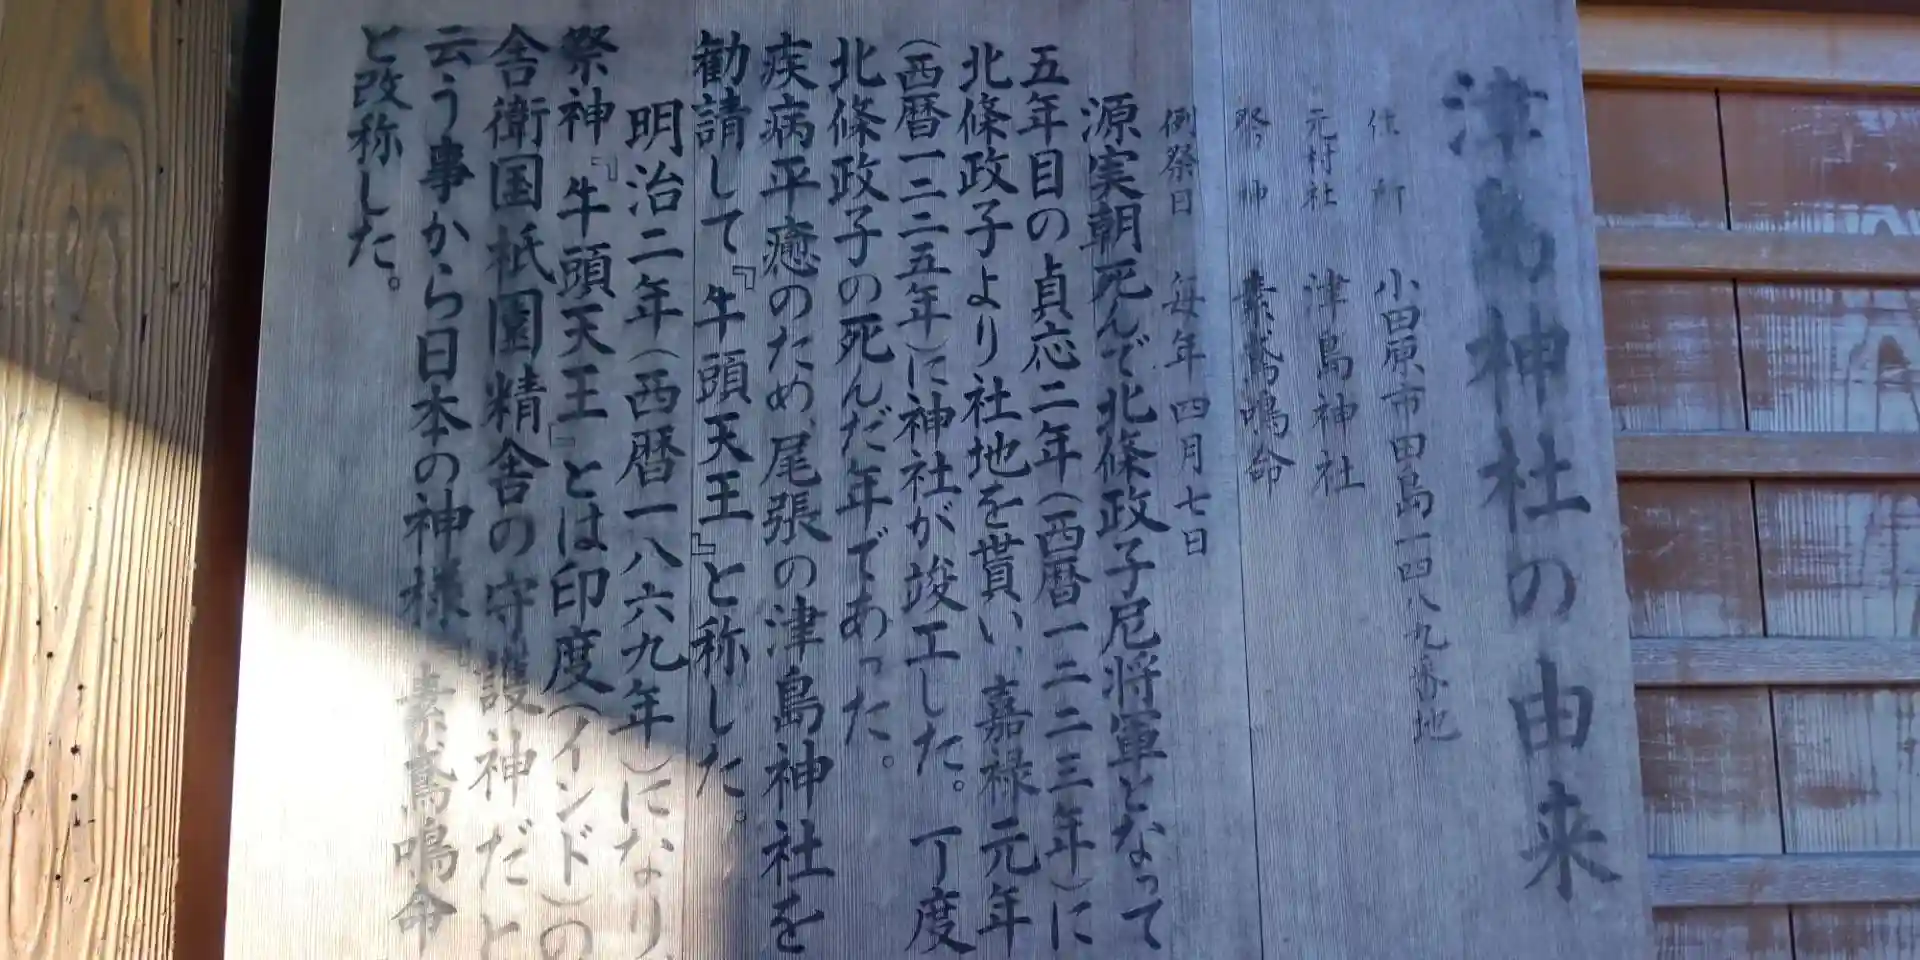 津島神社の由来
住所 小田原市田島一四八九番地
元村社 津島神社
祭神 素鳶鳴命
例祭日 毎年四月七日
源実朝死んで北條政子尼将軍となって
五年目の貞応二年(西暦一二二三年)に
北條政子より社地を貰い、嘉禄元年
(西暦一二二五年)に神社が竣工した。丁度
北條政子の死んだ年であった。
疾病平癒のため、尾張の津島神社を
勧請して『牛頭天王』と称した。
明治二年(西暦一八六九年)になり、
祭神『牛頭天王』とは印度(インド)の
舎衛国祇園精舎の守護神だと
云う事から日本の神様『素鳶鳴命
と改称した。